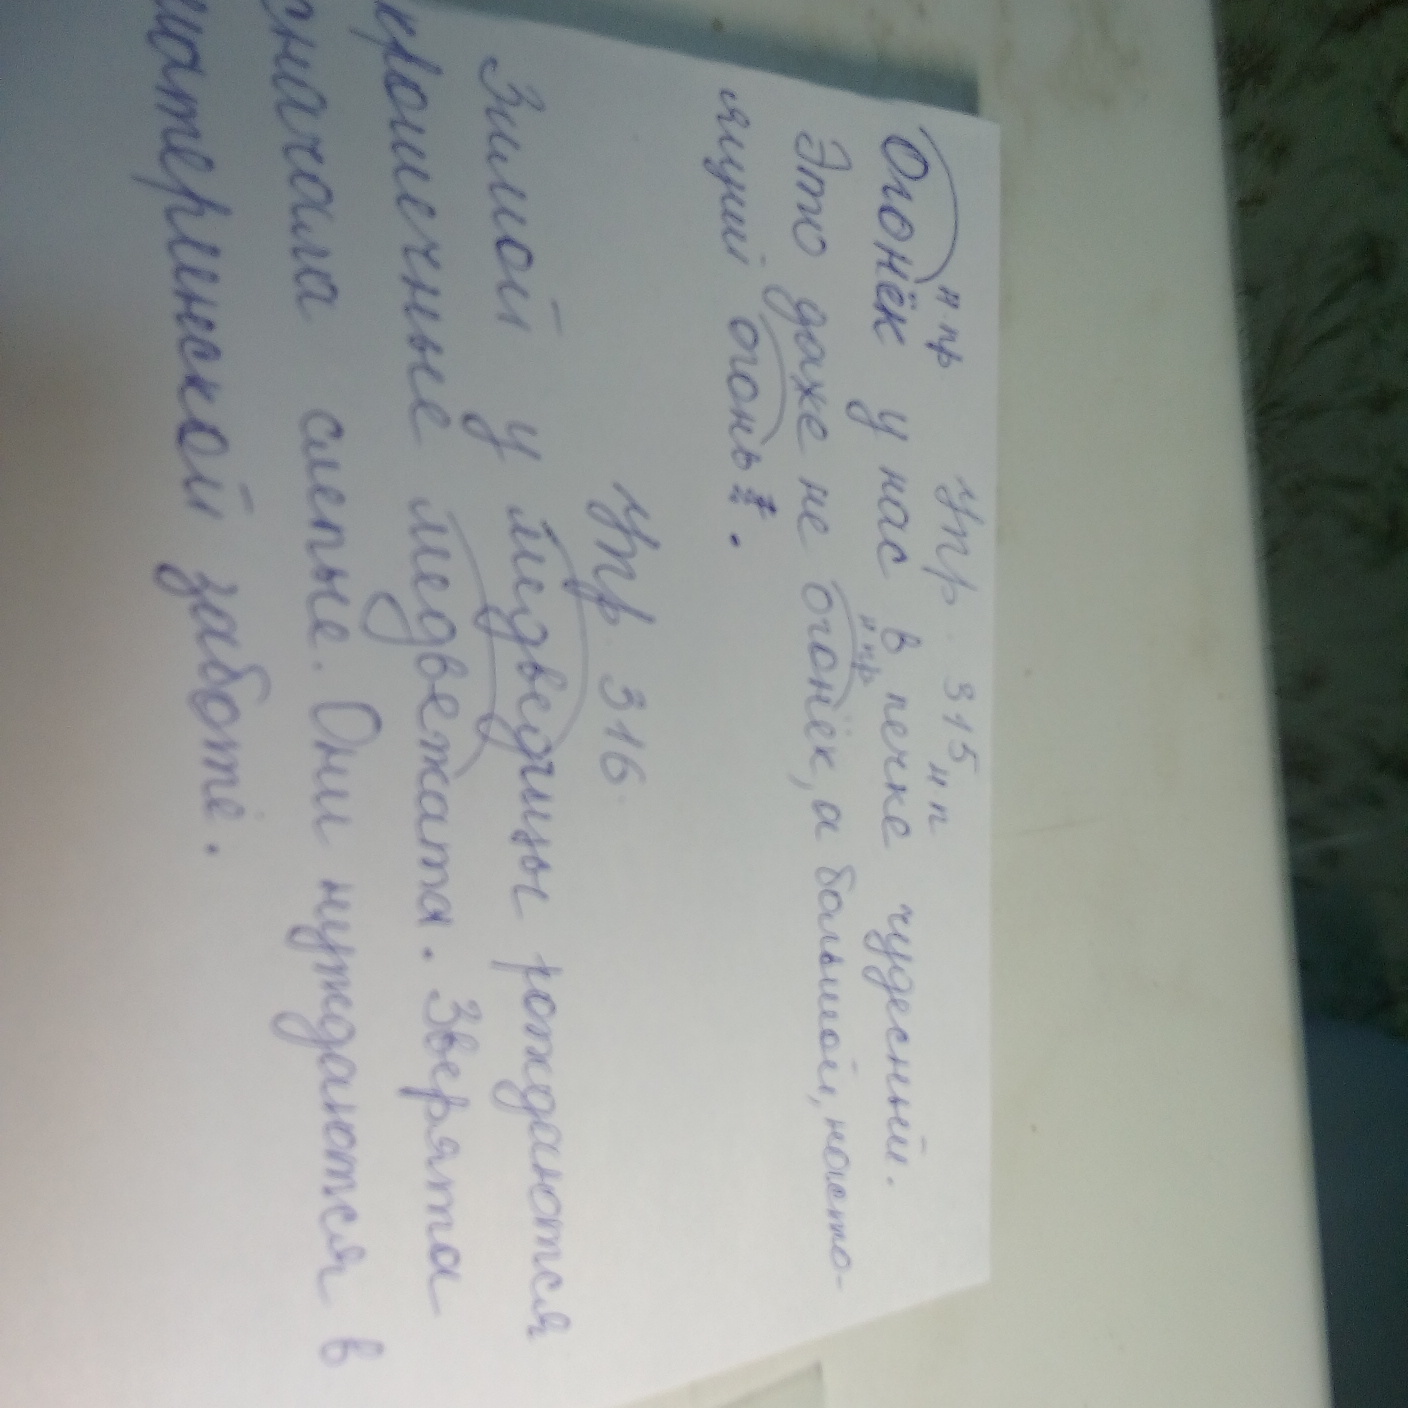 Упр. 315
н. пр. н. п
Огонёк у нас в печке чудесный.
н. пр.
Это даже не огонёк, а большой, насто-
ящий огонь.
Упр. 316.
Зимой у медведицы рождаются
крошечные медвежата. Зверята
сначала слепые. Они нуждаются в
материнской заботе.